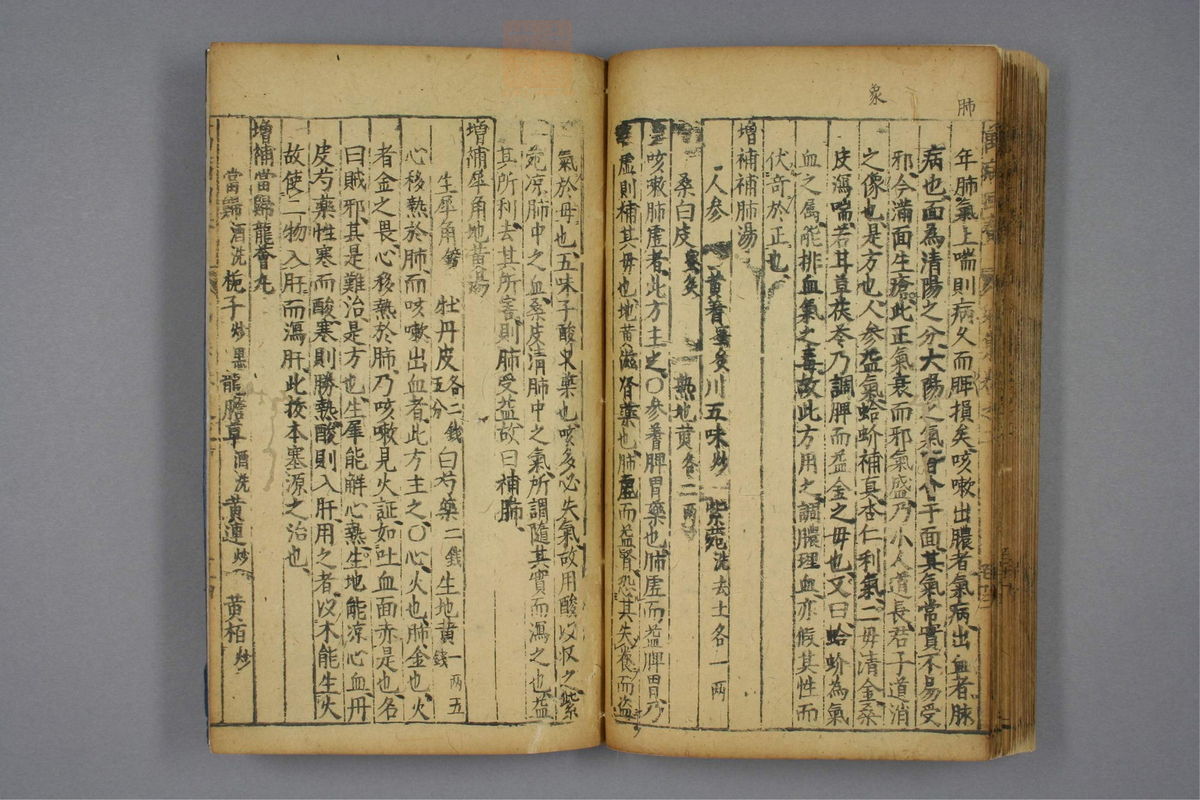 肺
象
年肺氣上喘則病久而脾損矣咳嗽出膿者氣病出血者脉
病也面為清陽之分大陽之氣皆會于面其氣常實不易受
邪今滿面生瘡此正氣衰而邪氣盛乃小人道長君子道消
之像也是方也人參益氣蛤蚧補真杏仁利氣二母清金桑
皮瀉喘若耳草茯苓乃調脾而益金之母也又曰蛤蚧為氣
血之属能排血氣之毒故此方用之調膿理血亦假其性而
伏奇於正也
增補補肺湯
人參 黃耆蜜炙川五味炒 紫菀洗去土各一兩
桑白皮蜜炙 熟地黃各二兩
咳嗽肺虛者此方主之〇參耆脾胃藥也肺虛而益脾胃乃
虛則補其母也地黃滋腎藥也肺虛而益腎恐其失養而盜
氣於母也五味子酸史藥也咳多必失氣故用酸以収之紫
菀凉肺中之血桑皮清肺中之氣所調隨其實而瀉之也益
其所利去其所害則肺受益故曰補肺
增補犀角地黃湯
生犀角鎊 牡丹皮各二錢五分白芍藥二錢生地黃一兩五錢
心移熱於肺而咳嗽出血者此方主之〇心火也肺金也火
者金之畏心移熱於肺乃咳嗽見火証如吐血面赤是也名
曰賊邪其是難治是方也生犀能解心熱生地能凉心血丹
皮芍藥性寒而酸寒則勝熱酸則入肝用之者以木能生火
故使二物入肝而瀉肝此拔本塞源之治也
增補當歸龍薈丸
當歸酒洗梔子炒黑龍膽草酒洗黃連炒 黃栢炒